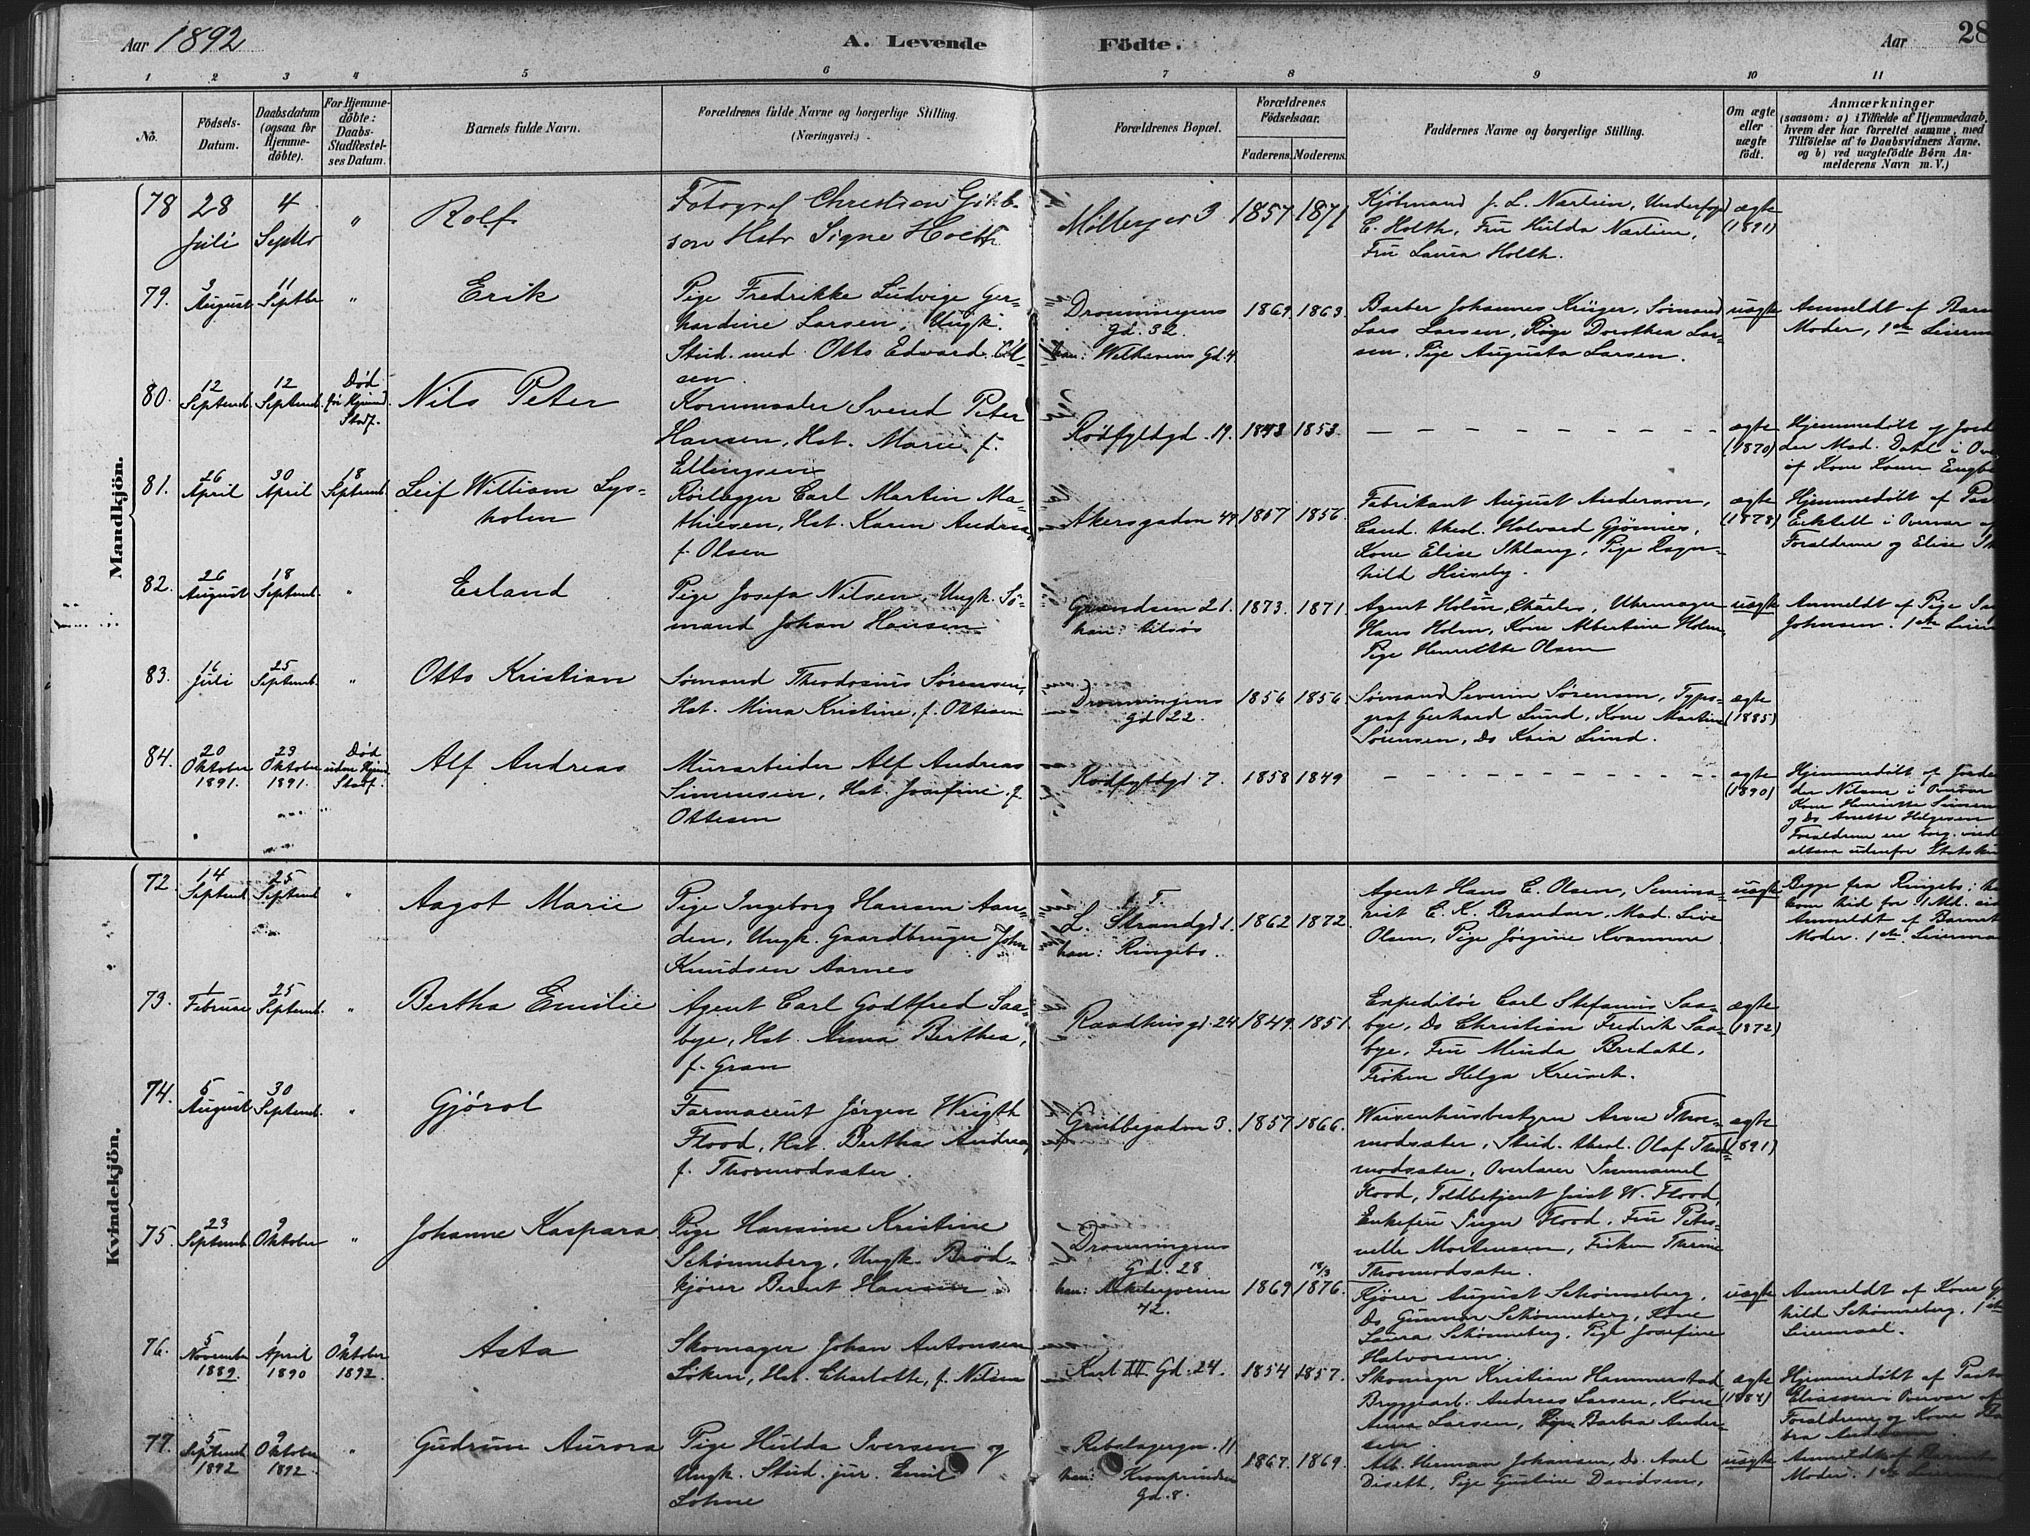 Aar 1892
A. Levende Födte.
Aar
28
1 2 3 4 5 6 7 8 9 10 11
No.
Födsels-Datum.
Daabsdatum (ogsaa for Hjemme-döbte).
For Hjemme-döbte: Daabs-Stadfæstel-ses Datum.
Barnets fulde Navn.
Forældrenes fulde Navne og borgerlige Stilling. (Næringsvei.)
Forældrenes Bopæl.
Forældrenes Födselsaar.
Faderens. Moderens.
Faddernes Navne og borgerlige Stilling.
Om ægte eller uægte födt.
Anmærkninger
(saasom: a) i Tilfælde af Hjemmedaab,
hvem der har forrettet samme, med
Tilföielse af to Daabsvidners Navne.
og b) ved uægtefödte Börn An-
melderens Navn m. V.)
Mandkjön.
78 28 Juli 4 Septbr " Rolf
Fotograf Christian
son Signe
3 1857 1871
Kjöbmand
E. Holth, Fru Hulda
Fru Laura Holth.
ægte (1891)
79. 3 August 11 Septbr " Erik
Pige Fredrikke Ludvige Ger-
hardine Larsen, Ungk.
Stud. med. Otto Edvard
sen.
Dronningens Gd. 32
han: Welhavens Gd. 4
1869. 1863.
Barber Johannes Krüger, Sømand
Lars Larsen, Pige Dorothea Lar-
sen, Pige Augusta Larsen.
uægte
Anmeldt af Barn
Moder, 1ste Leierm
80. 12 Septemb. 12 Septemb. Død Stadf. Nils Peter
Kornmaaler Svend Peter
Hansen, Hst. Marie f.
Ellingsen
Rödfyldgd. 19. 1843 1853.
ægte (1870)
Hjemmedöbt af Jord
der Mad. Dahl i Over
af Kone
81. 26 April 30 April 18 Septemb. Leif William Lys-
holm
Rørlægger Carl Martin Ma-
thiesen, Hst. Karen Andrea
f. Olsen
Akersgaden 1857 1856.
Fabrikant August Anderson,
Cand. theol. Halvard Gjösnes,
Kone Elise Pige Ragn-
hild Huseby.
ægte (1878)
Hjemmedöbt af Past
i Overvær af
Forældrene og Elise
82. 26 August 18 Septemb. " Erland
Pige Josefa Nilsen, Ungk. Sö-
mand Johan Hansen
21. 1873. 1871
Agent Holm, Charles, Uhrmager
Hans Holm, Kone Albertine Holm,
Pige Henriette Olsen
uægte
Anmeldt af Pige
Johnsen. 1ste Leierm
83. 16 Juli 25 Septemb. " Otto Kristian
Sømand Theodosius Sørensen,
Hst. Mina Kristine, f. Ottesen
Dronningens Gd 22. 1856 1856
Sømand Severin Sørensen, Typo-
graf Gerhard Lund, Kone Martine
Sørensen, Do Kaia Lund.
ægte (1885)
84. 20 Oktober 1891. 23 Oktober 1891. Død uden Stadf. Alf Andreas
Murarbeider Alf Andreas
Simensen, Hst. Josefine f.
Ottesen
Rödfyldgd. 7. 1858 1849
ægte (1890)
Hjemmedöbt af Jorde
der Nilsen i Overvær
Kone Henriette Simen
og Do Anette Helgesen
Forældrene ere borg. viede
altsaa udenfor Statskir
Kvindekjön.
72. 14 Septemb. 25 Septemb. " Aagot Marie
Pige Ingeborg Hansen Aan-
den, Ungk. Gaardbruger John
Knudsen Aarnes
L. Strandgd 1. 1862 1872.
han: Ringebo.
Agent Hans C. Olsen, Semina-
rist E. K. Mad. Live
Olsen, Pige Jörgine Kvamme
uægte
Begge fra Ringebo:
kom hid for 1 Md. si
Anmeldt af Barnet
Moder. 1ste Leierma
73. 1 Februar 25 Septemb. " Bertha Emilie
Agent Carl Godtfred Saa-
bye, Hst. Anna Berthea,
f. Gran
Raadhusgd. 24 1849. 1851.
Expeditör Carl Stefanus Saa-
bye, Do Christian Fredrik Saa-
bye, Fru Minda Bredahl,
Fröken Helga
ægte (1872)
74. 5 August 30 Septemb. " Gjörol
Farmaceut Jörgen Wrigth
Flood, Hst. Bertha Andrea,
f. Thormodsæter.
Grubbegaden 3. 1857 1866.
Waisenhusbestyrer Arne Thor-
modsæter, Stud. theol. Olaf Thor-
modsæter, Overlærer Immanuel
Flood, Toldbetjent Just W. Flood,
Enkefru Inger Flood, Fru Peter-
nelle Mortensen, Fröken Thrine
Thormodsæter.
ægte (1891)
75. 23 Septemb. 9 Oktober " Johanne Kaspara
Pige Hansine Kristine
Schönneberg, Ungk. Bröd-
kjörer Bernt Hansen
Dronningens Gd. 28
42
1869 18/3 1876.
Kjører August Schönneberg,
Do Gunnar Schönneberg, Kone
Laura Schönneberg, Pige Josefine
Halvorsen.
uægte
Anmeldt af Kone G
hild Schönneberg. 1ste
Leiermaal.
76. 5 November 1889 1 April 1890 9 Oktober 1892. Asta
Skomager Johan Antonsen
Löken, Hst. Charlotte, f. Nilsen
Karl XII Gd. 24. 1854 1857.
Skomager Kristian Hammerstad
Bryggearb. Andreas Larsen, Kone
Anna Larsen, Pige Barbra Ander-
sen.
ægte (1884)
Hjemmedöbt af Pasto
Eliassen i Overvær af
Forældrene og Kone Ba
bra Andersen.
77. 5 Septemb. 1892 9 Oktober 1892. " Gudrun Aurora
Pige Hulda Iversen og
Ungk. Stud. jur. Emil
Löhne
11
han: Kronprindsens Gd. 8.
1867. 1869.
Arb. Herman Johansen, Do. Axel
Diseth, Pige Gustine Davidsen,
uægte
Anmeldt af Barnets
Moder. 1ste Leiermaal